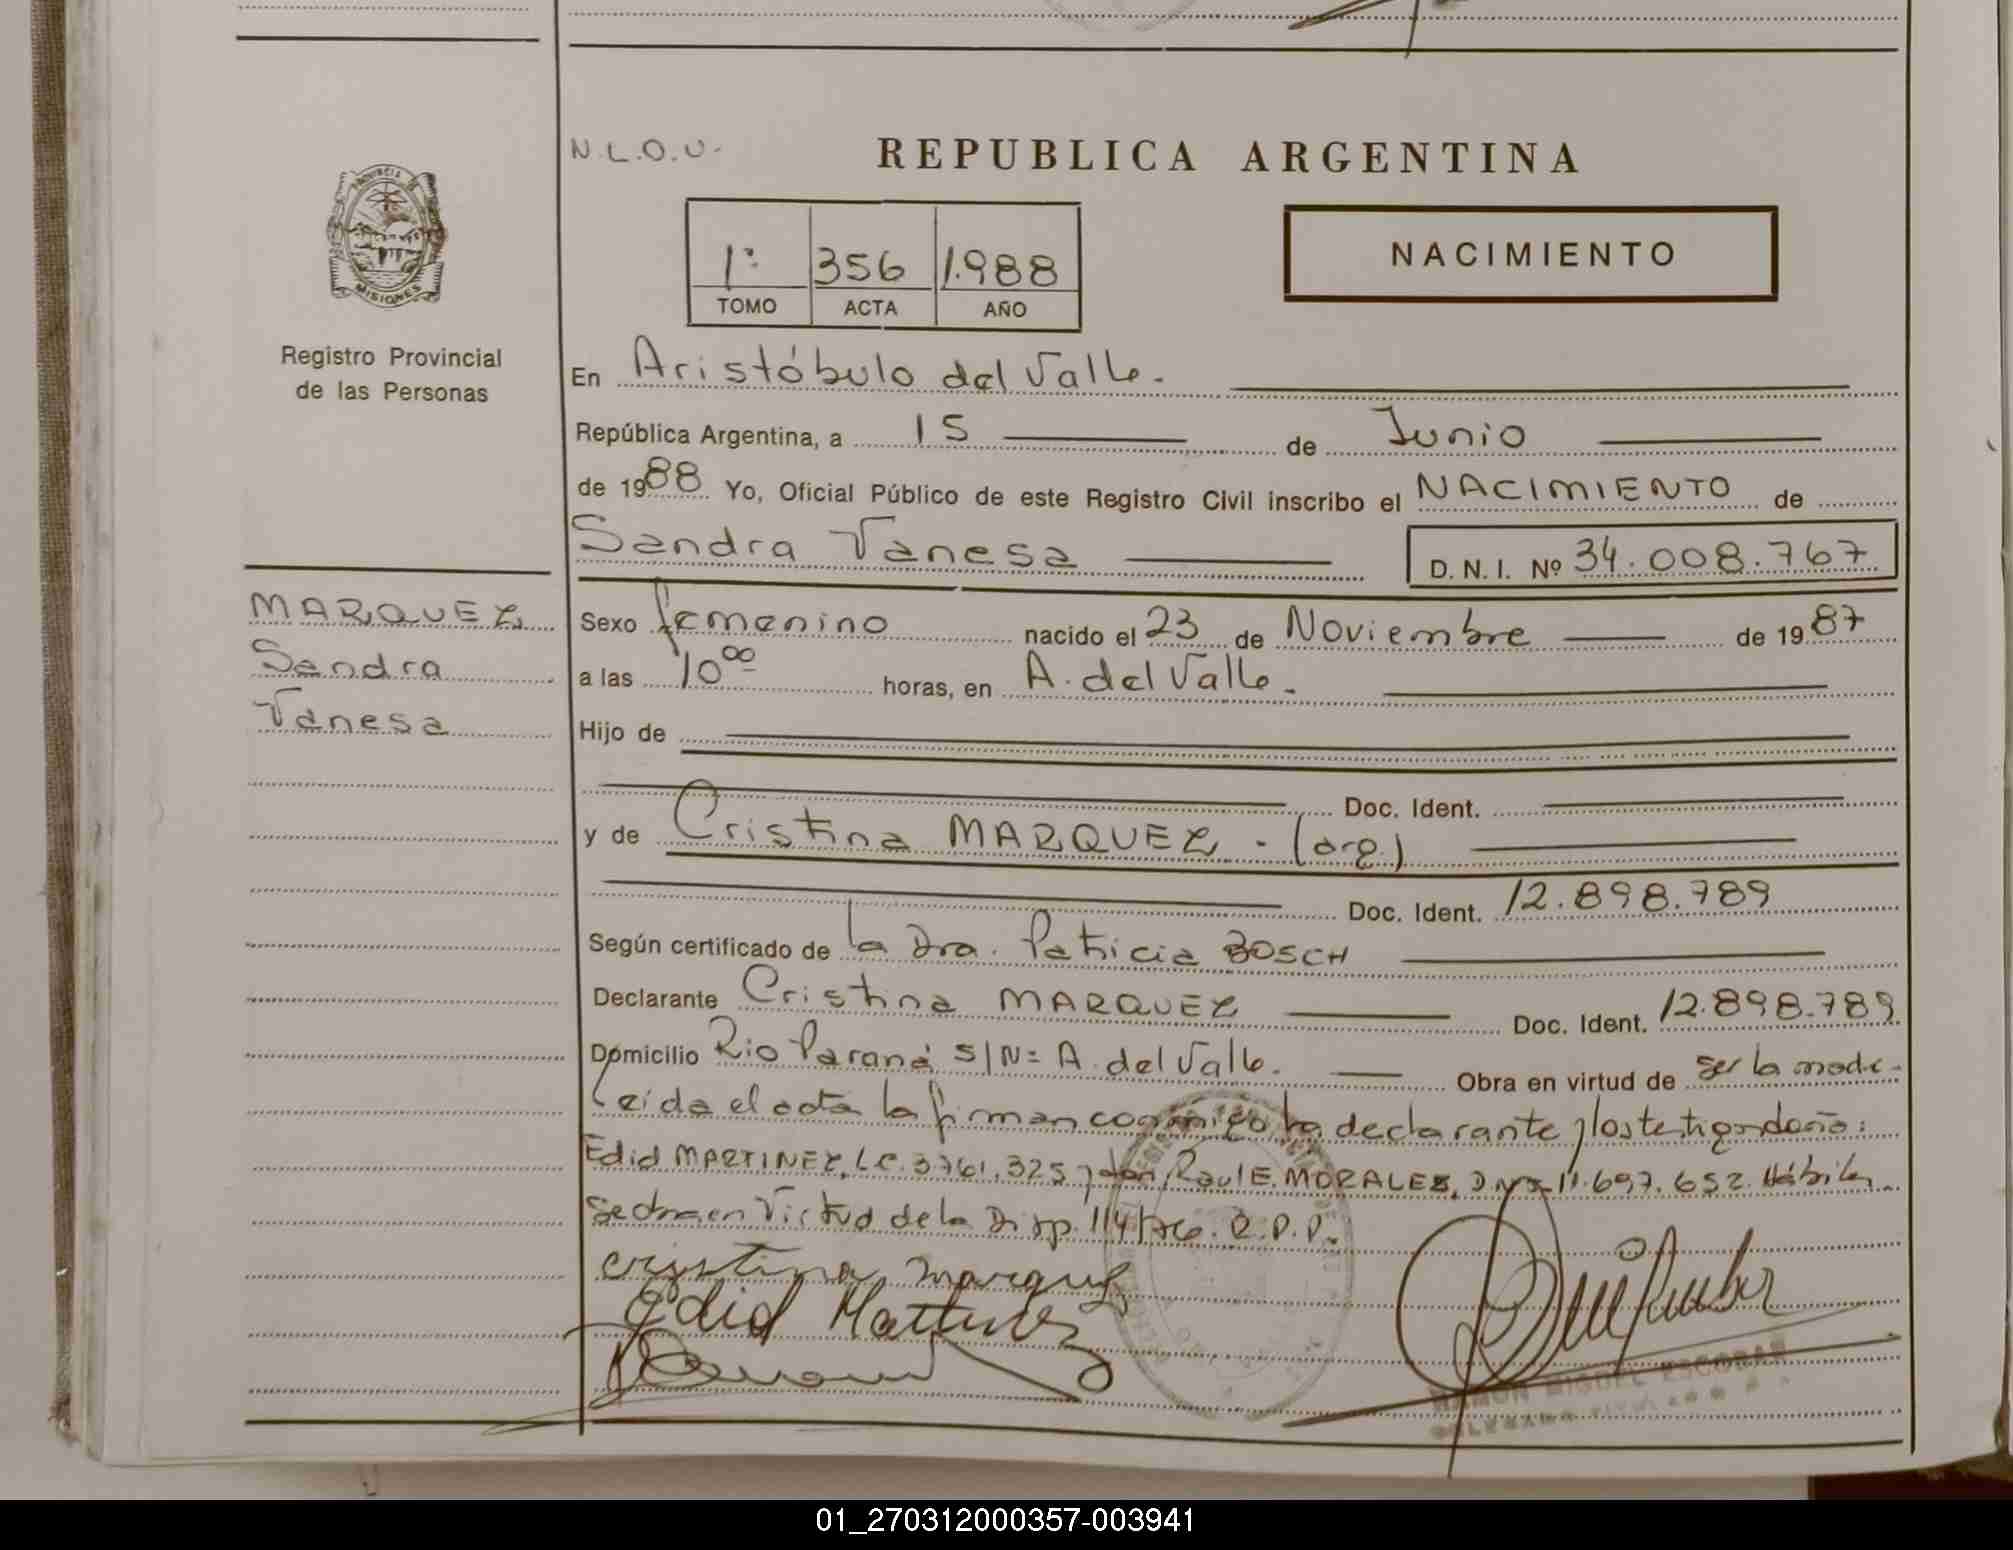 N.L.O.U.
REPUBLICA ARGENTINA
NACIMIENTO
1º 356 1.988
TOMO ACTA AÑO
PROVINCIA DE
MISIONES
Registro Provincial
de las Personas
En Aristóbulo del Valle.
República Argentina, a 15 de Junio
de 1988 Yo, Oficial Público de este Registro Civil inscribo el NACIMIENTO de
Sandra Vanesa D. N. I. Nº 34.008.767
MARQUEZ
Sandra
Vanesa
Sexo femenino nacido el 23 de Noviembre de 1987
a las 10 00 horas, en A. del Valle.
Hijo de
Doc. Ident.
y de Cristina MARQUEZ - (arg.)
Doc. Ident. 12.898.789
Según certificado de la Dra. Patricia BOSCH
Declarante Cristina MARQUEZ Doc. Ident. 12.898.789
Domicilio Rio Paraná S/Nº A. del Valle. Obra en virtud de ser la madre
Leida el acta la firman conmigo la declarante y los testigos doña:
Edid MARTINEZ, L.C. 3.761.325 y don Raul E. MORALES, D.N.I. 11.697.652 Hábiles
Se obra en Virtud de la Disp. 114/86. R.P.P.
Cristina Marquez
Edid Martinez
RAMON MIGUEL ESCOBAR
01_270312000357-003941